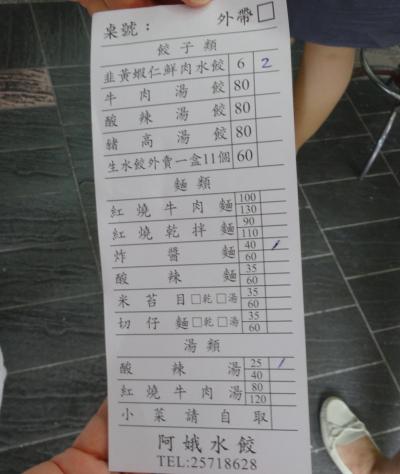 桌號： 外帶□
餃子類
韭黃蝦仁鮮肉水餃 6 2
牛肉湯餃 80
酸辣湯餃 80
豬高湯餃 80
生水餃外賣一盒11個 60
麵類
紅燒牛肉麵 100 130
紅燒乾拌麵 90 110
炸醬麵 40 60
酸辣麵 35 60
米苔目□乾□湯 35 60
切仔麵□乾□湯 35 60
湯類
酸辣湯 25 40
紅燒牛肉湯 80 120
小菜請自取
阿娥水餃
TEL:25718628